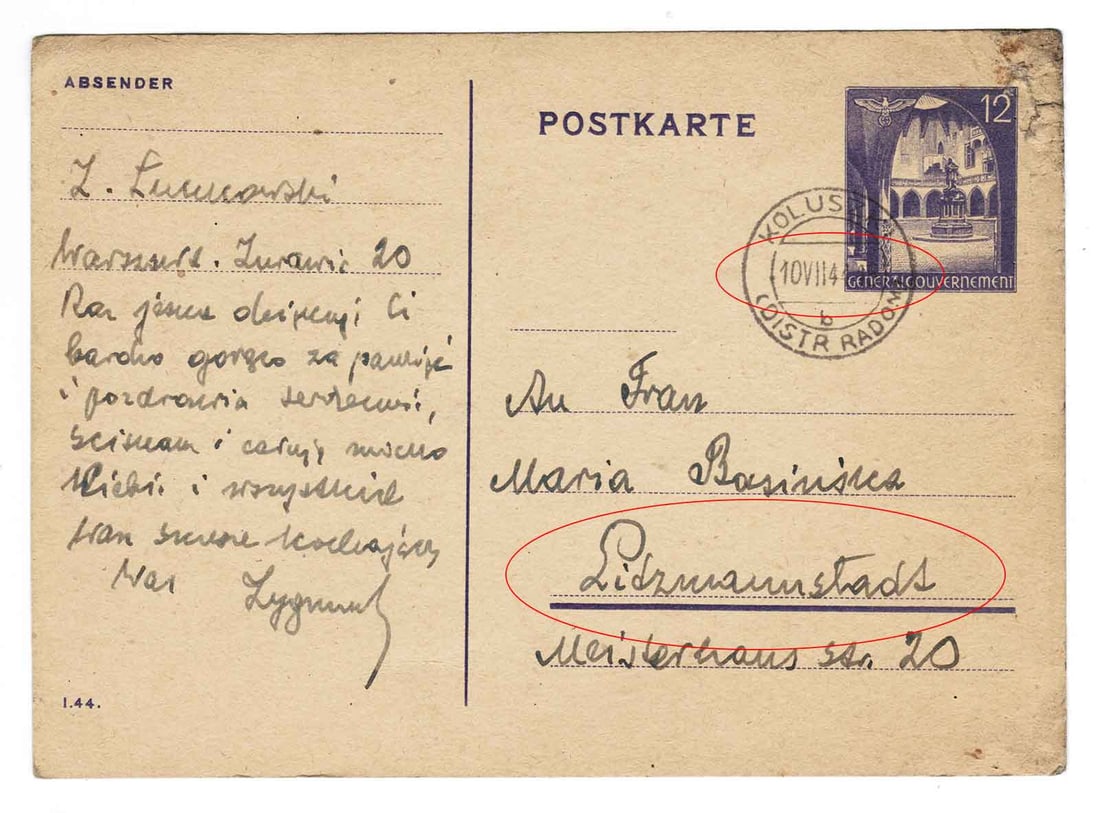 ABSENDER
Z.
Warszawa. Żurawia 20
Raz jeszcze dziękuję Ci
bardzo gorąco za pamięć
i pozdrowia serdeczni,
ściskam i całuję mocno
Ciebie i wszystkich
kochający
Was Zygmunt
I.44.
POSTKARTE
12
GENERALGOUVERNEMENT
KOLUS
10VII4
b
(DISTR RADOM)
An Frau
Maria Basińska
Litzmannstadt
Meisterhaus str. 20